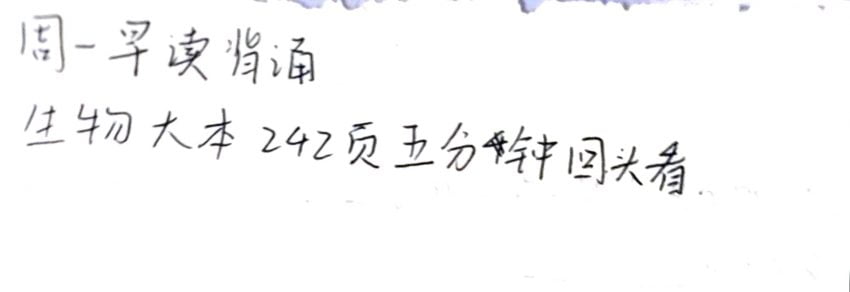 周一早读背诵
生物大本242页五分钟回头看.